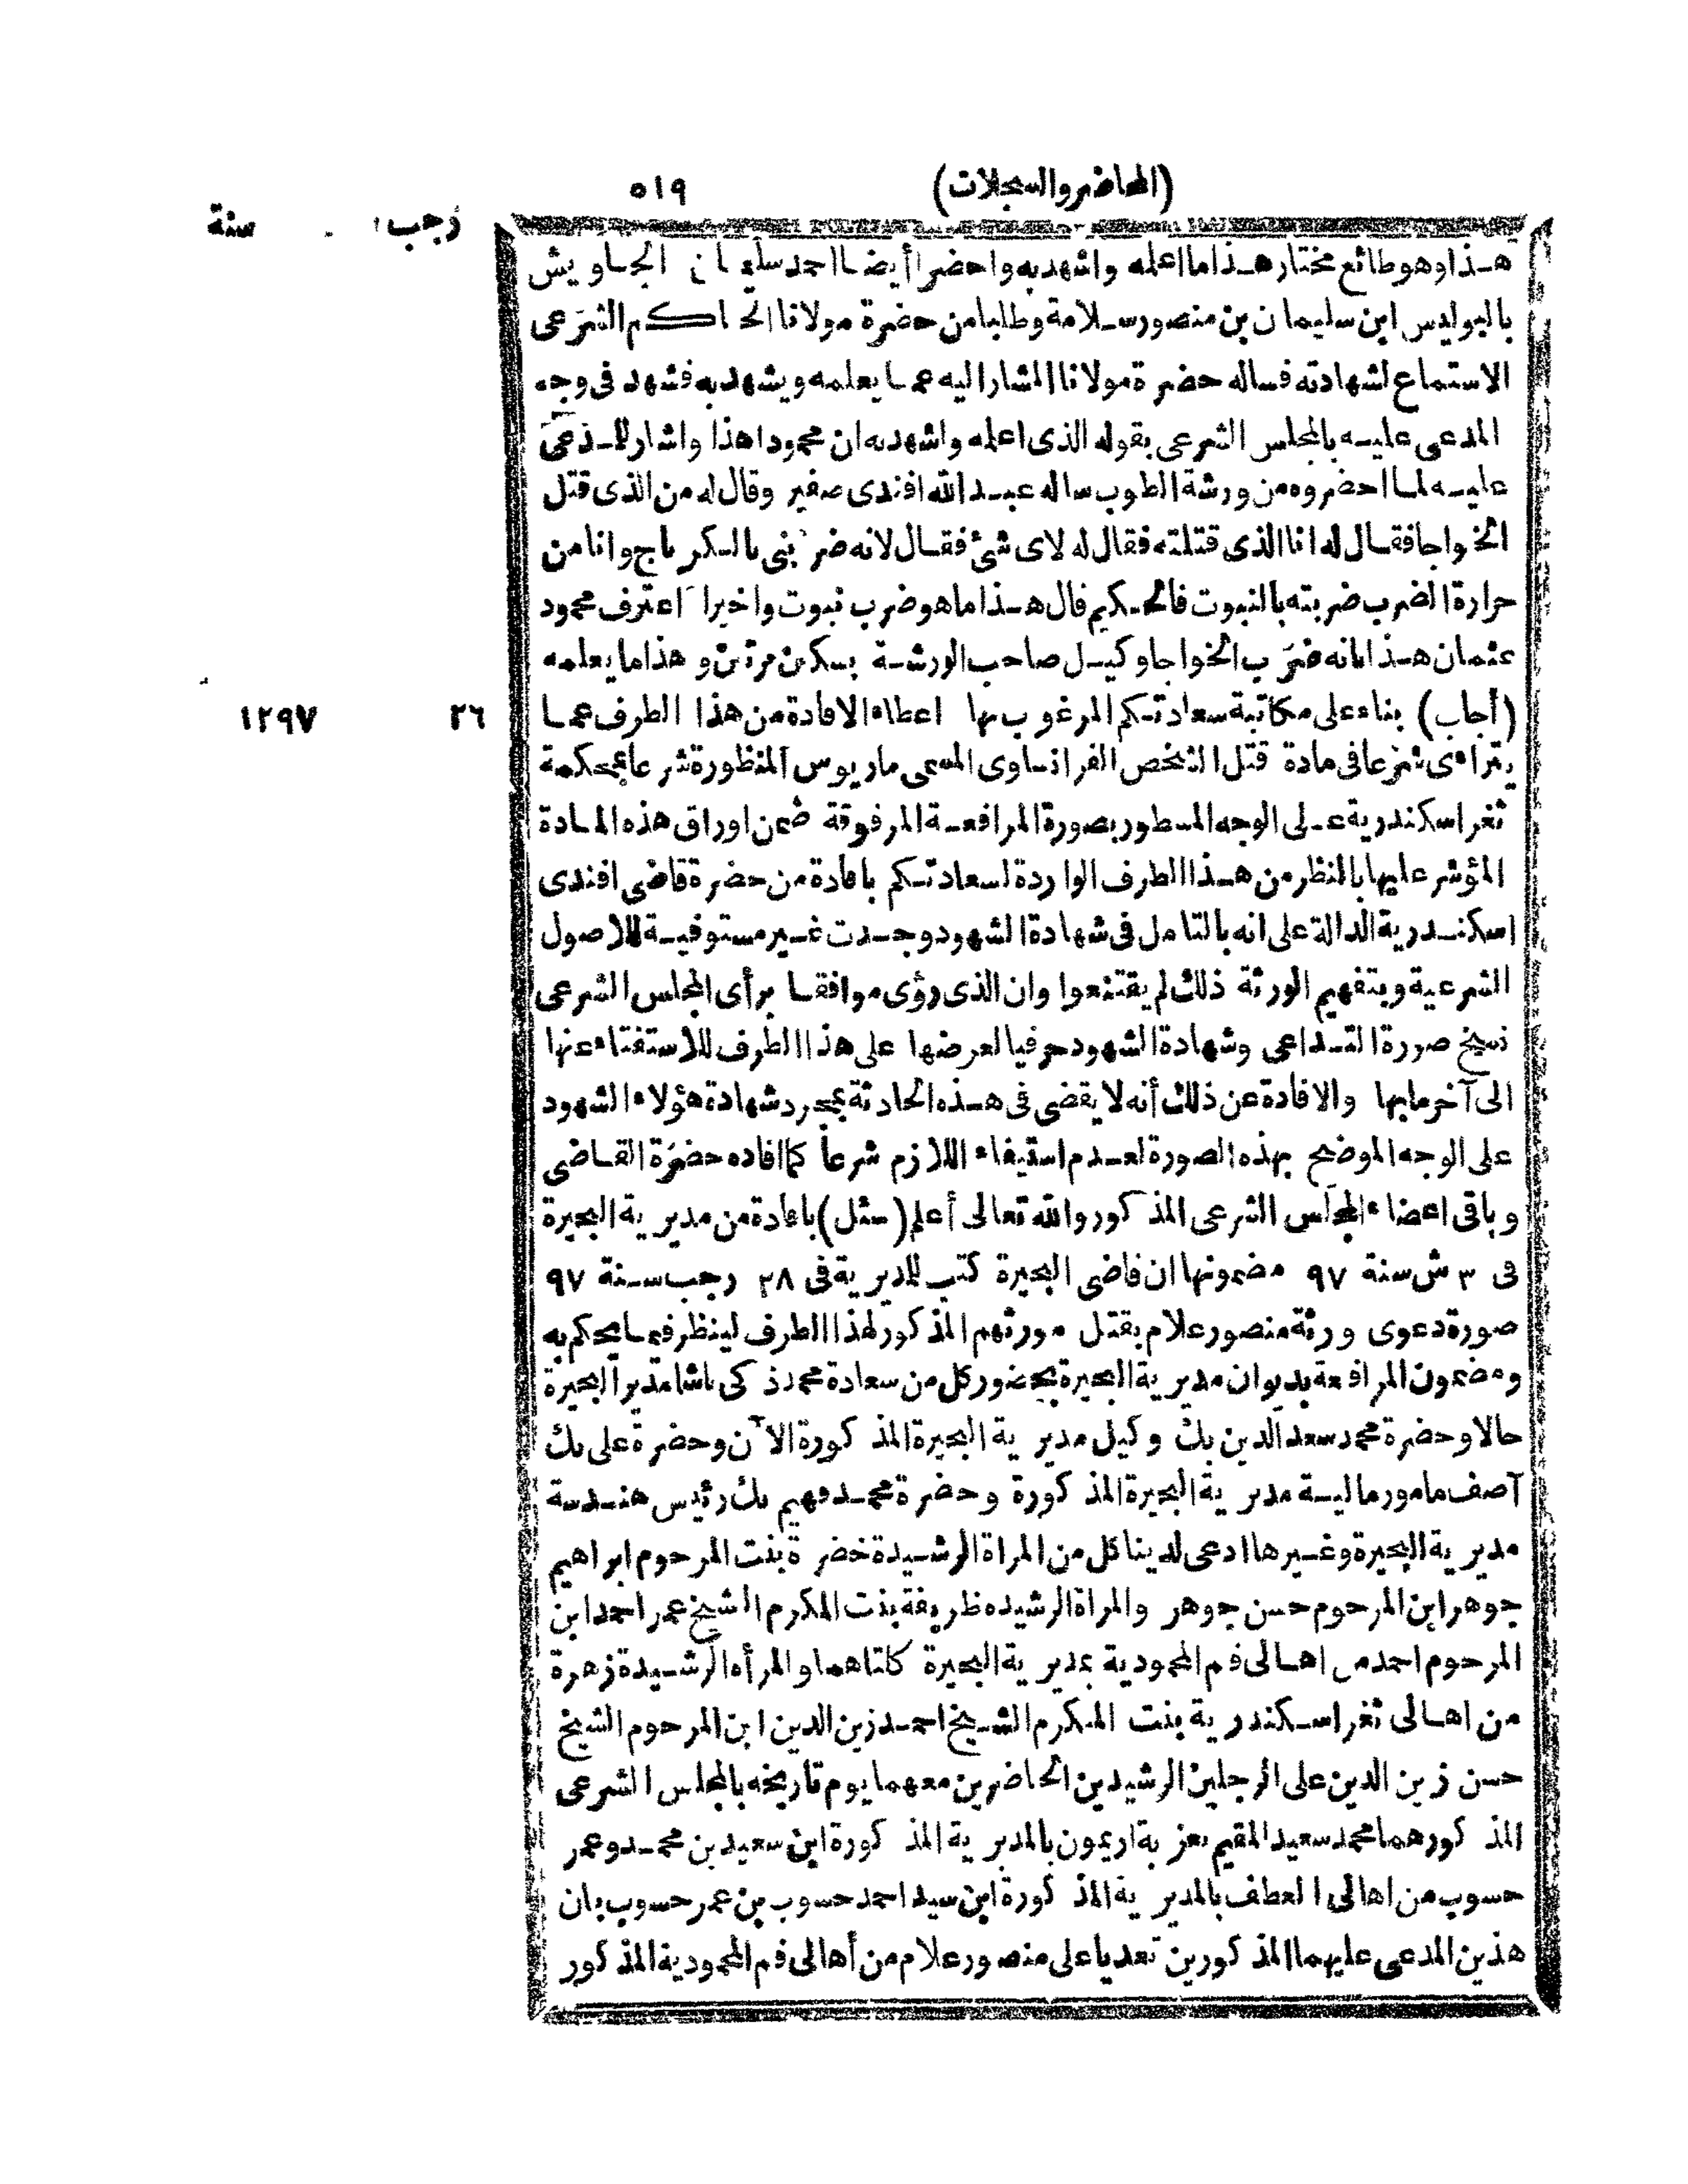 (المحاضر والسجلات) ٥١٩
رجب سنة
هـذا وهو طائع مختار هـذا ما اعلمه واشهد به واحضر أيضا احمد سليمان الجاويش
بالبوليس ابن سليمان بن منصور سـلامة وطلبا من حضرة مولانا الحاكم الشرعى
الاستماع لشهادته فساله حضرة مولانا المشار اليه عما يعلمه ويشهد به فشهد فى وجه
المدعى عليـه بالمجلس الشرعى بقوله الذى اعلمه واشهد به ان محمودا هذا واشار للمـدعى
عليـه لما احضروه من ورشة الطوب ساله عبـد الله افندى صغير وقال له من الذى قتل
الخواجا فقـال له انا الذى قتلته فقال له لاى شئ فقـال لانه ضربنى بالـكرباج وانا من
حرارة الضرب ضربته بالنبوت فالحـكيم قال هـذا ما هو ضرب نبوت واخيرا اعترف محمود
عثمان هـذا بانه ضرب الخواجا وكيـل صاحب الورشـة بسكين مرتين وهذا ما يعلمه
(أجاب) بناء على مكاتبة سعادتـكم المرغوب بها اعطاء الافادة من هذا الطرف عمـا ٢٦ ١٢٩٧
يتراءى شرعا فى مادة قتل الشخص الفرانسـاوى المسمى ماريوس المنظورة شرعا بمحكمة
ثغر اسكندرية عـلى الوجه المسطور بصورة المرافعـة المرفوقة ضمن اوراق هذه المـادة
المؤشر عليها بالنظر من هـذا الطرف الواردة لسعادتـكم بافادة من حضرة قاضى افندى
اسكنـدرية الدالة على انه بالتامل فى شهادة الشهود وجـدت غـير مستوفيـة للاصول
الشرعية وبتفهيم الورثة ذلك لم يقتنعوا وان الذى رؤى موافقـا برأى المجلس الشرعى
نسخ صورة التـداعى وشهادة الشهود حرفيا لعرضها على هذا الطرف للاستفتاء عنها
الى آخر ما بها والافادة عن ذلك أنه لا يقضى فى هـذه الحادثة بمجرد شهادة هؤلاء الشهود
على الوجه الموضح بهذه الصورة لعـدم استيفاء اللازم شرعا كما افاده حضرة القـاضى
وباقى اعضاء المجلس الشرعى المذكور والله تعالى أعلم (سئل) بافادة من مديرية البحيرة
فى ٣ ش سنة ٩٧ مضمونها ان قاضى البحيرة كتب للمديرية فى ٢٨ رجب سـنة ٩٧
صورة دعوى ورثة منصور علام بقتل مورثهم المذكور لهذا الطرف لينظر فيمـا يحكم به
ومضمون المرافعة بديوان مديرية البحيرة بحضور كل من سعادة محمد ذكى باشا مدير البحيرة
حالا وحضرة محمد سعد الدين بك وكيل مديرية البحيرة المذكورة الآن وحضرة على بك
آصف مامور ماليـة مديرية البحيرة المذكورة وحضرة محمـد فهيم بك رئيس هنـدسة
مديرية البحيرة وغـيرها ادعى لدينا كل من المراة الرشـيدة خضرة بنت المرحوم ابراهيم
جوهر ابن المرحوم حسن جوهر والمراة الرشيده ظريفة بنت المكرم الشيخ عمر احمد ابن
المرحوم احمد من اهـالى فم المحمودية بمديرية البحيرة كلتاهما والمرأه الرشـيدة زهرة
من اهـالى ثغر اسـكندرية بنت المكرم الشـيخ احمـد زين الدين ابن المرحوم الشيخ
حسن زين الدين على الرجلين الرشيدين الحاضرين معهما يوم تاريخه بالمجلس الشرعى
المذكور هما محمد سعيد المقيم بعزبة اريمون بالمديرية المذكورة ابن سعيد بن محمـد وعمر
حسوب من اهالى العطف بالمديرية المذكورة ابن سيد احمد حسوب بن عمر حسوب بان
هذين المدعى عليهما المذكورين تعديا على منصور علام من أهالى فم المحمودية المذكور